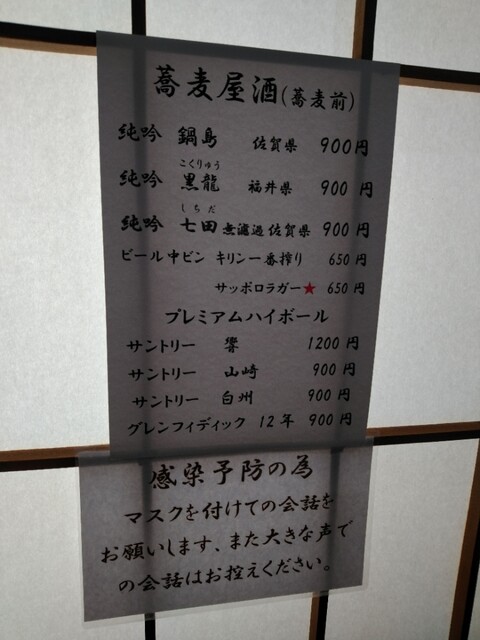 蕎麦屋酒(蕎麦前)
純吟 鍋島 佐賀県 900円
こくりゅう
純吟 黒龍 福井県 900円
しちだ
純吟 七田 無濾過 佐賀県 900円
ビール中ビン キリン一番搾り 650円
サッポロラガー★ 650円
プレミアムハイボール
サントリー 響 1200円
サントリー 山崎 900円
サントリー 白州 900円
グレンフィディック 12年 900円
感染予防の為
マスクを付けての会話を
お願いします、また大きな声で
の会話はお控えください。